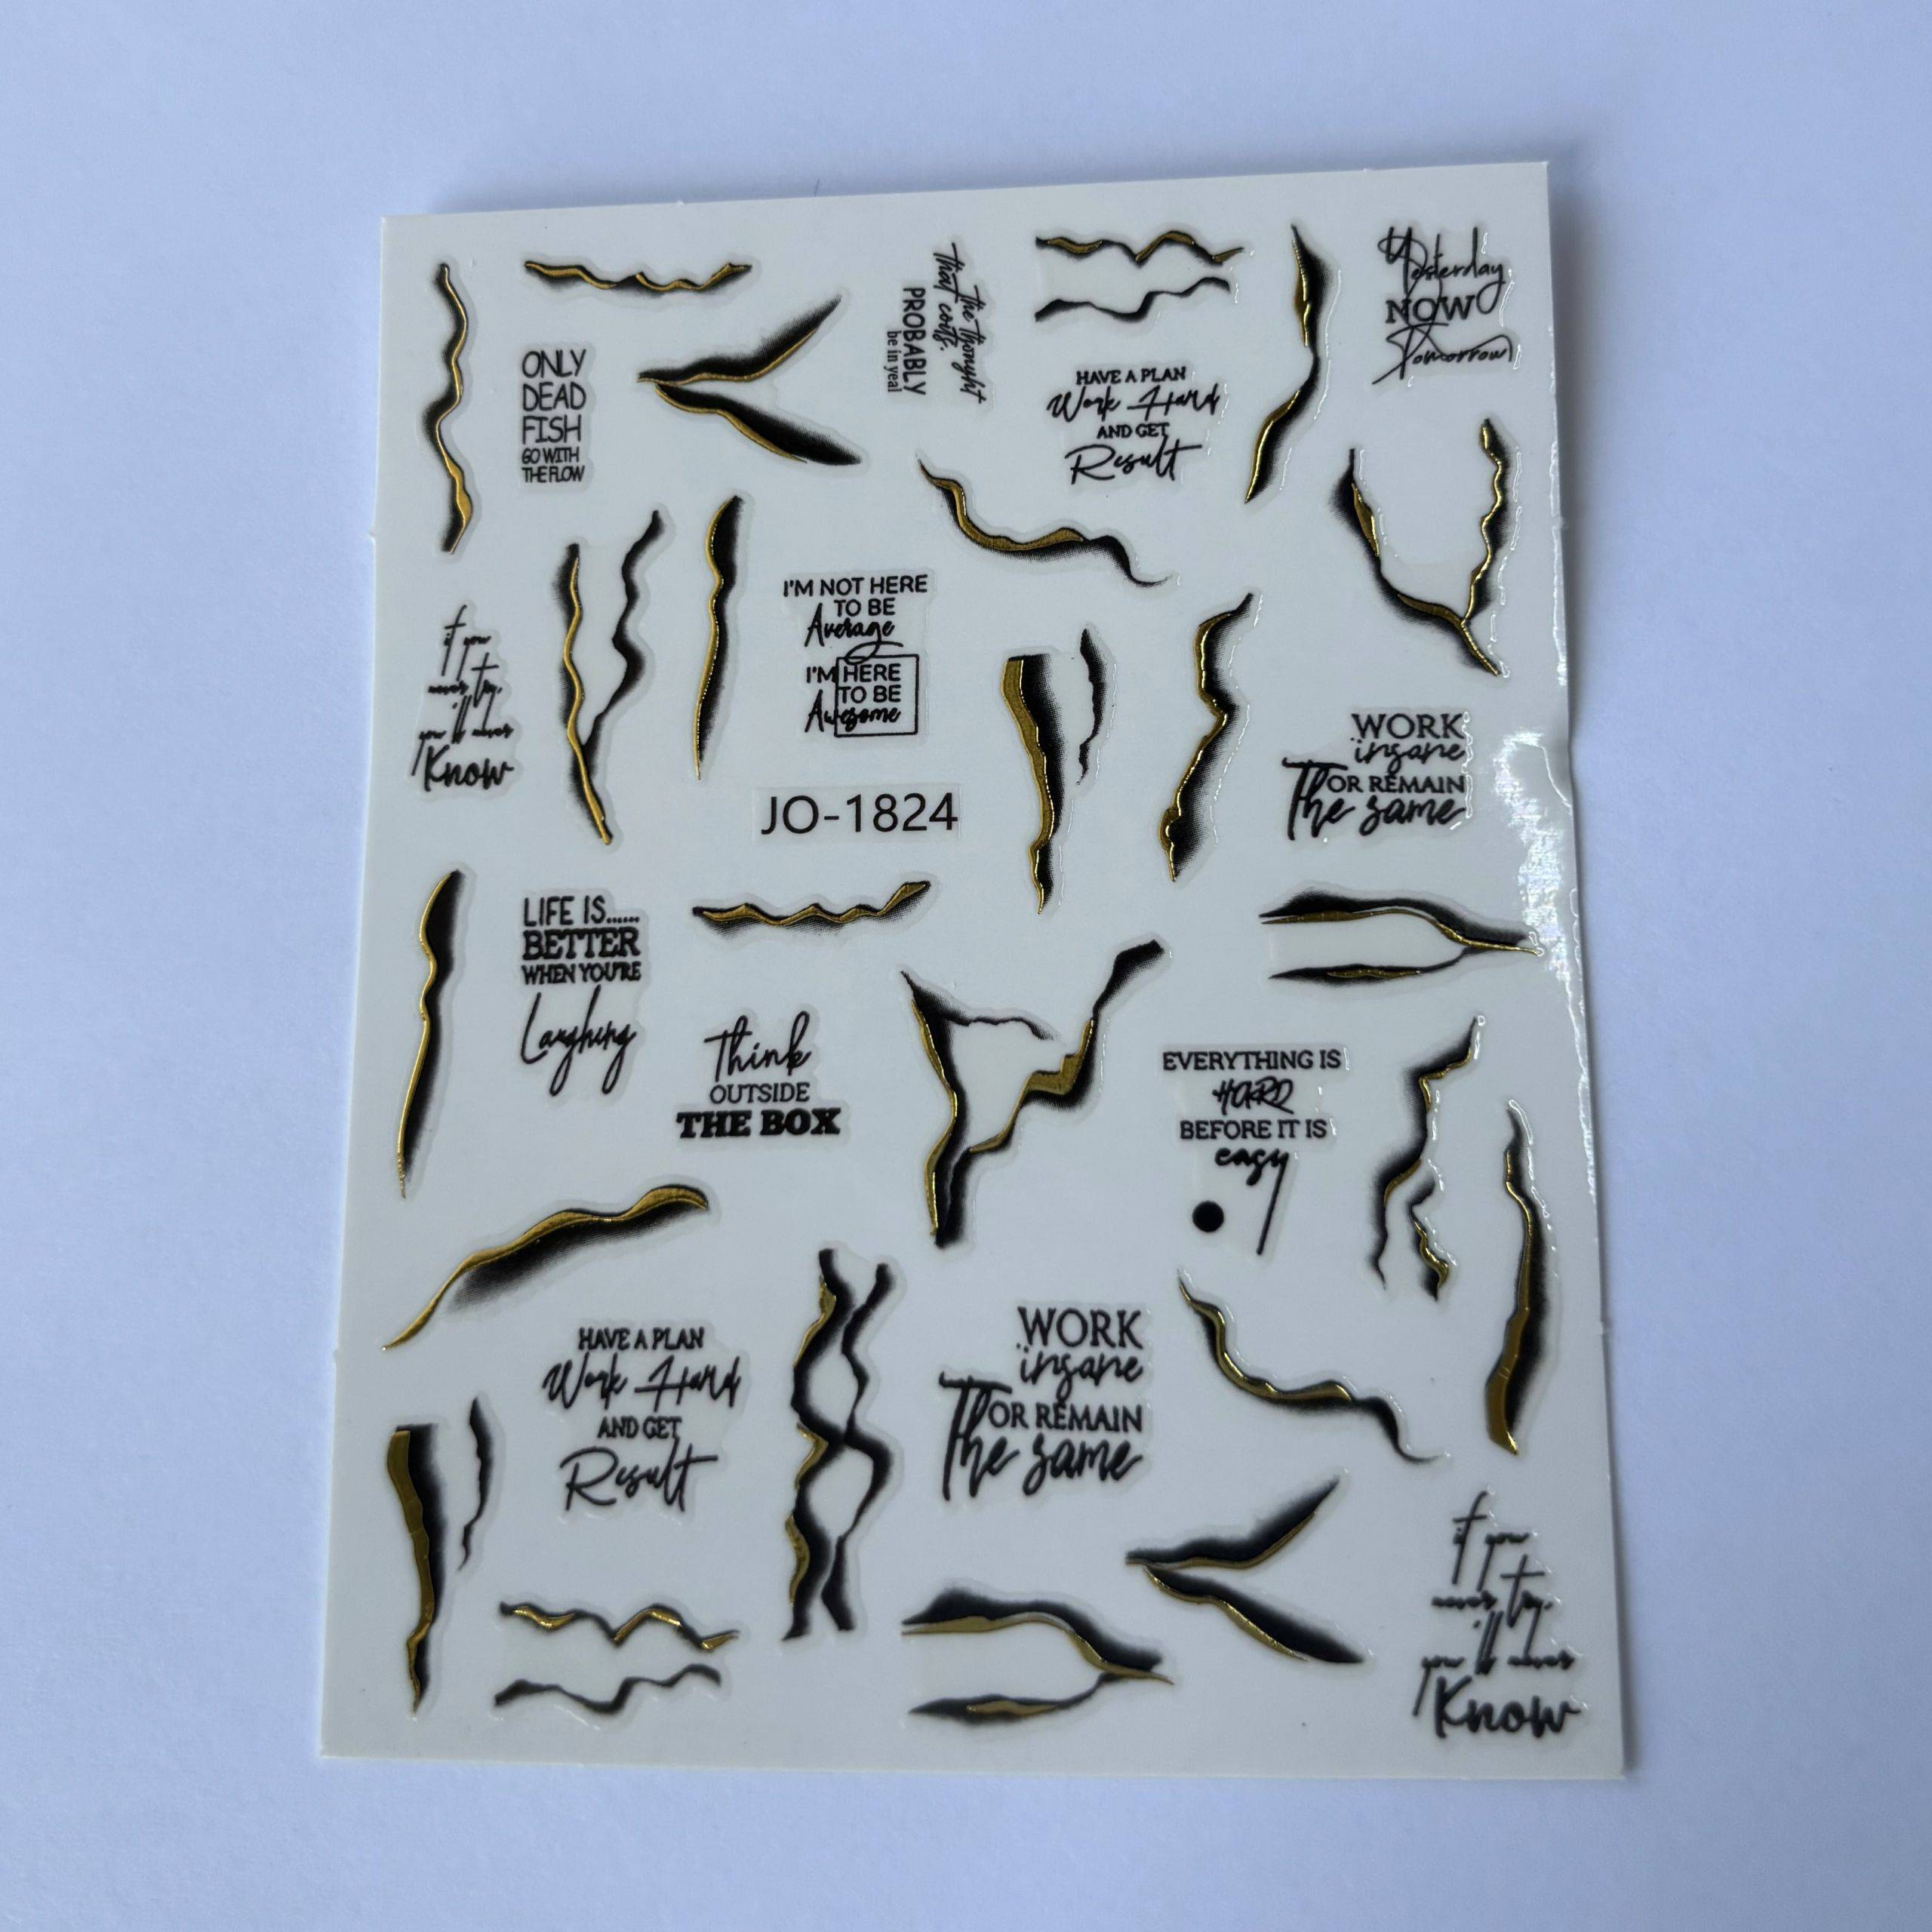 Yesterday
NOW
Tomorrow
the thonyht
that coits.
PROBABLY
be in yeal
ONLY
DEAD
FISH
GO WITH
THE FLOW
HAVE A PLAN
Work Hard
AND GET
Result
I'M NOT HERE
TO BE
Average
I'M HERE
TO BE
Awesome
if you
never try,
you'll never
Know
WORK
insane
OR REMAIN
The same
JO-1824
LIFE IS......
BETTER
WHEN YOU'RE
Laughing
Think
OUTSIDE
THE BOX
EVERYTHING IS
HARD
BEFORE IT IS
easy
HAVE A PLAN
Work Hard
AND GET
Result
WORK
insane
OR REMAIN
The same
if you
never try,
you'll never
Know